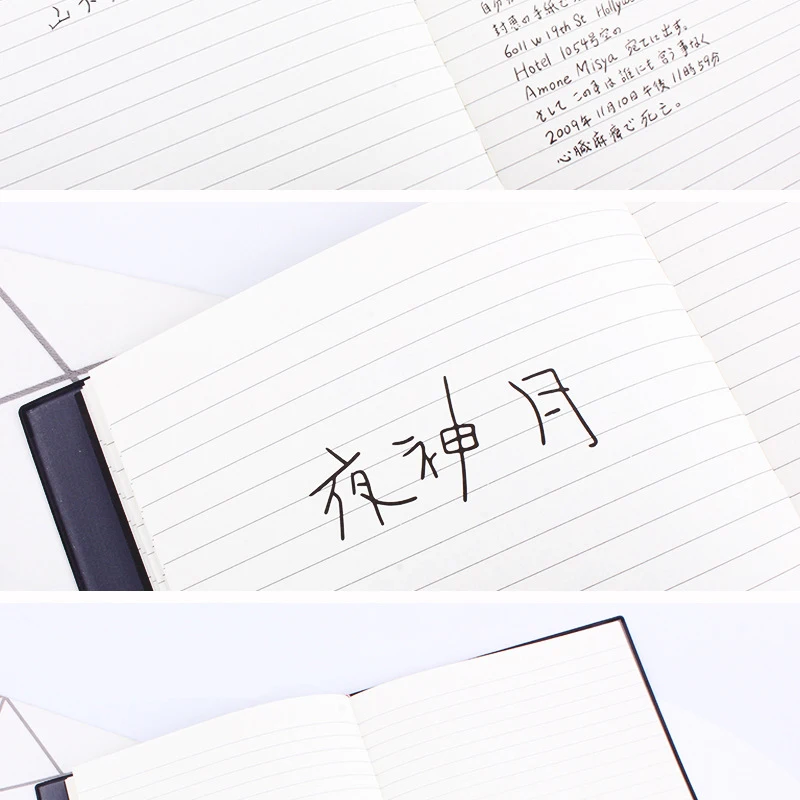 山木
自分
封悪の手紙で
6011 W 19th St Hollyw
Hotel 1054号室の
Amone Misya 宛てに出す。
そして この事は誰にも言う事なく
2009年11月10日午後11時59分
心臓麻痺で死亡。
夜神 月